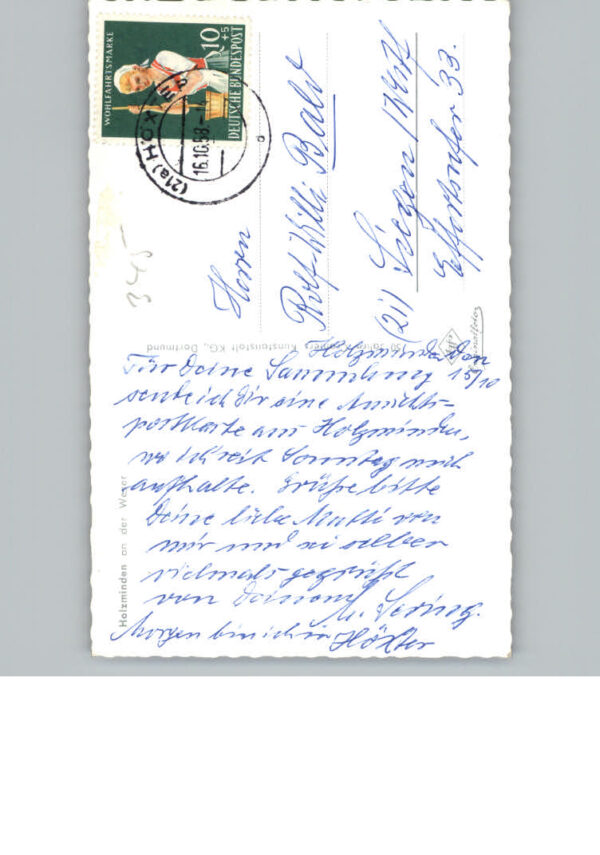 WOHLFAHRTSMARKE
10
+5
DEUTSCHE BUNDESPOST
(21a) HÖXTER
16.10.58
345
Herren
Rolf-Willi Bald
(21) Siegen /Westf
33.
Kunstanstalt KG., Dortmund
Holzminden an der Weser
Holzminden den
15/10
Für Deine Sammlung
sende ich Dir eine Ansichts-
postkarte aus Holzminden,
wo ich seit Sonntag mich
aufhalte. Grüße bitte
Deine liebe Mutti von
mir und sei selber
vielmals gegrüßt
von Deinem
Morgen bin ich in Höxter